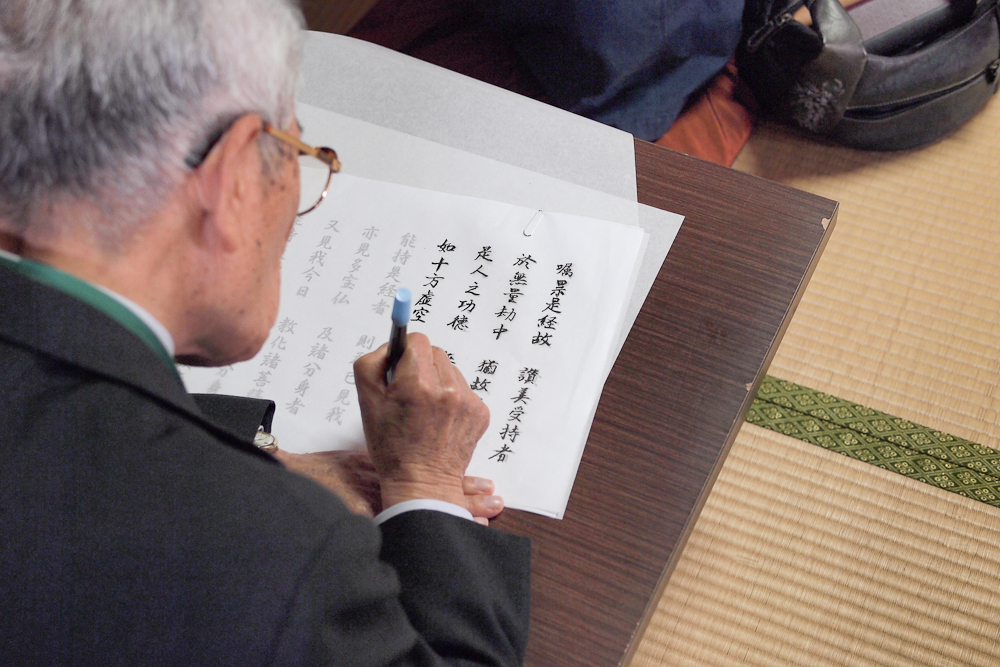 嘱累是経故 讃美受持者
於無量劫中 猶故
是人之功徳
如十方虚空
能持是経者 則 已見我
亦見多宝仏 及諸分身者
又見我今日 教化諸菩